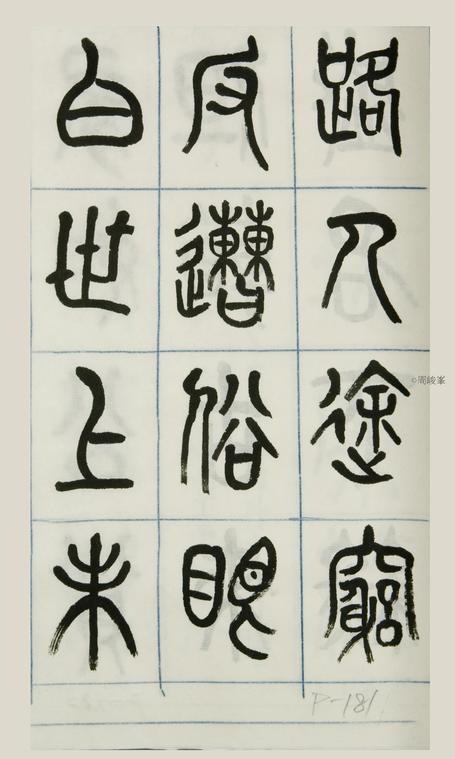 路人途窮
反遭俗眼
白世上未
P-181
©周峻峯